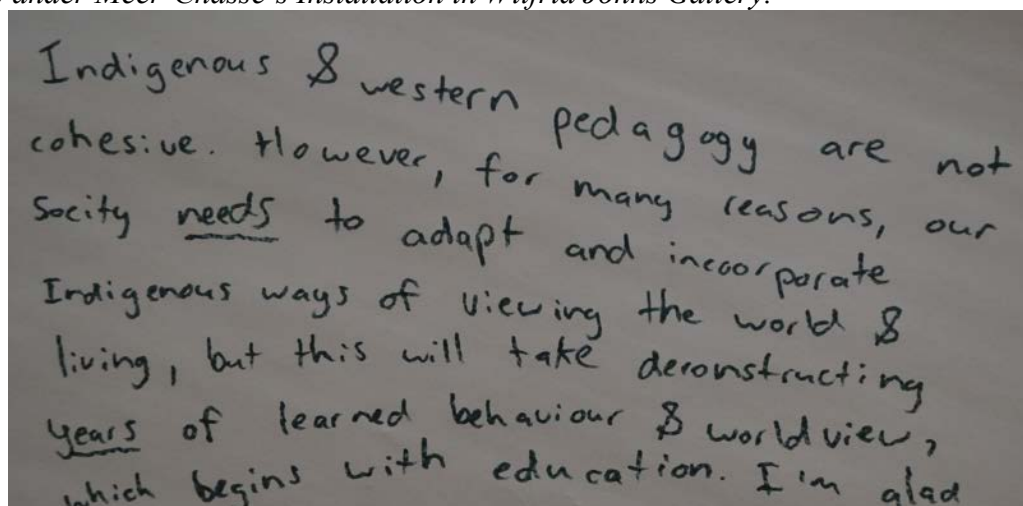 Meer Chasse's Installation in Wilfrid Johns Gallery.
Indigenous & western pedagogy are not
cohesive. However, for many reasons, our
Socity needs to adapt and incoorporate
Indigenous ways of viewing the world &
living, but this will take deconstructing
years of learned behaviour & world view,
which begins with education. I'm glad